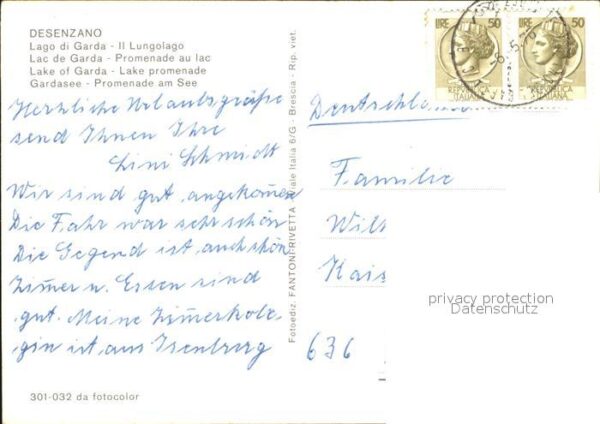 DESENZANO
Lago di Garda - Il Lungolago
Lac de Garda - Promenade au lac
Lake of Garda - Lake promenade
Gardasee - Promenade am See
LIRE 50
REPUBBLICA
ITALIANA
LIRE 50
REPUBBLICA
ITALIANA
Herzliche Urlaubsgrüße
send Ihnen Ihre
Lini Schmidt
Wir sind gut angekom̅en
Die Fahr war sehr schön
Die Gegend ist auch schön
Zim̅er u. Essen sind
gut. Meine Zim̅erkole-
gin ist aus Isenburg
301-032 da fotocolor
Fotoediz. FANTONI RIVETTA Viale Italia 6/G - Brescia - Rip. viet.
Deutschland
Familie
Wil
Kais
636
privacy protection
Datenschutz